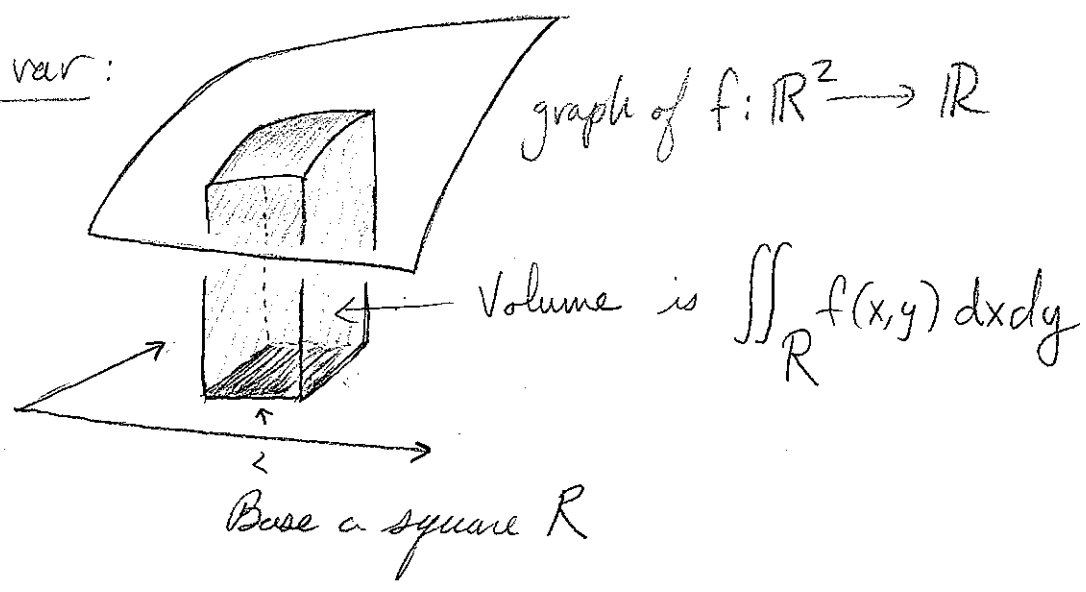 var:
graph of f: ℝ² → ℝ
Volume is ∬_R f(x,y) dxdy
Base a square R